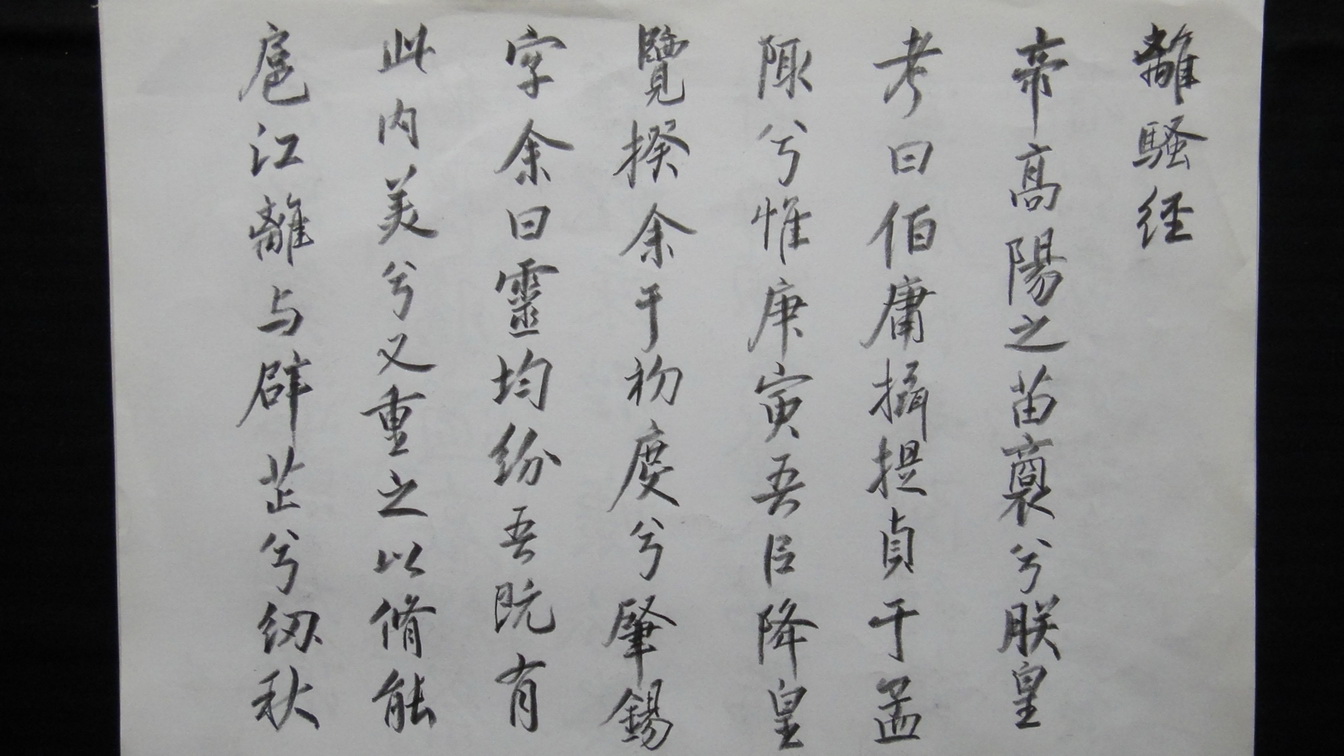 離騷経
帝高陽之苗裔兮朕皇
考曰伯庸攝提貞于孟
陬兮惟庚寅吾以降皇
覽揆余于初度兮肇錫
字余曰靈均紛吾既有
此内美兮又重之以脩能
扈江離与辟芷兮纫秋